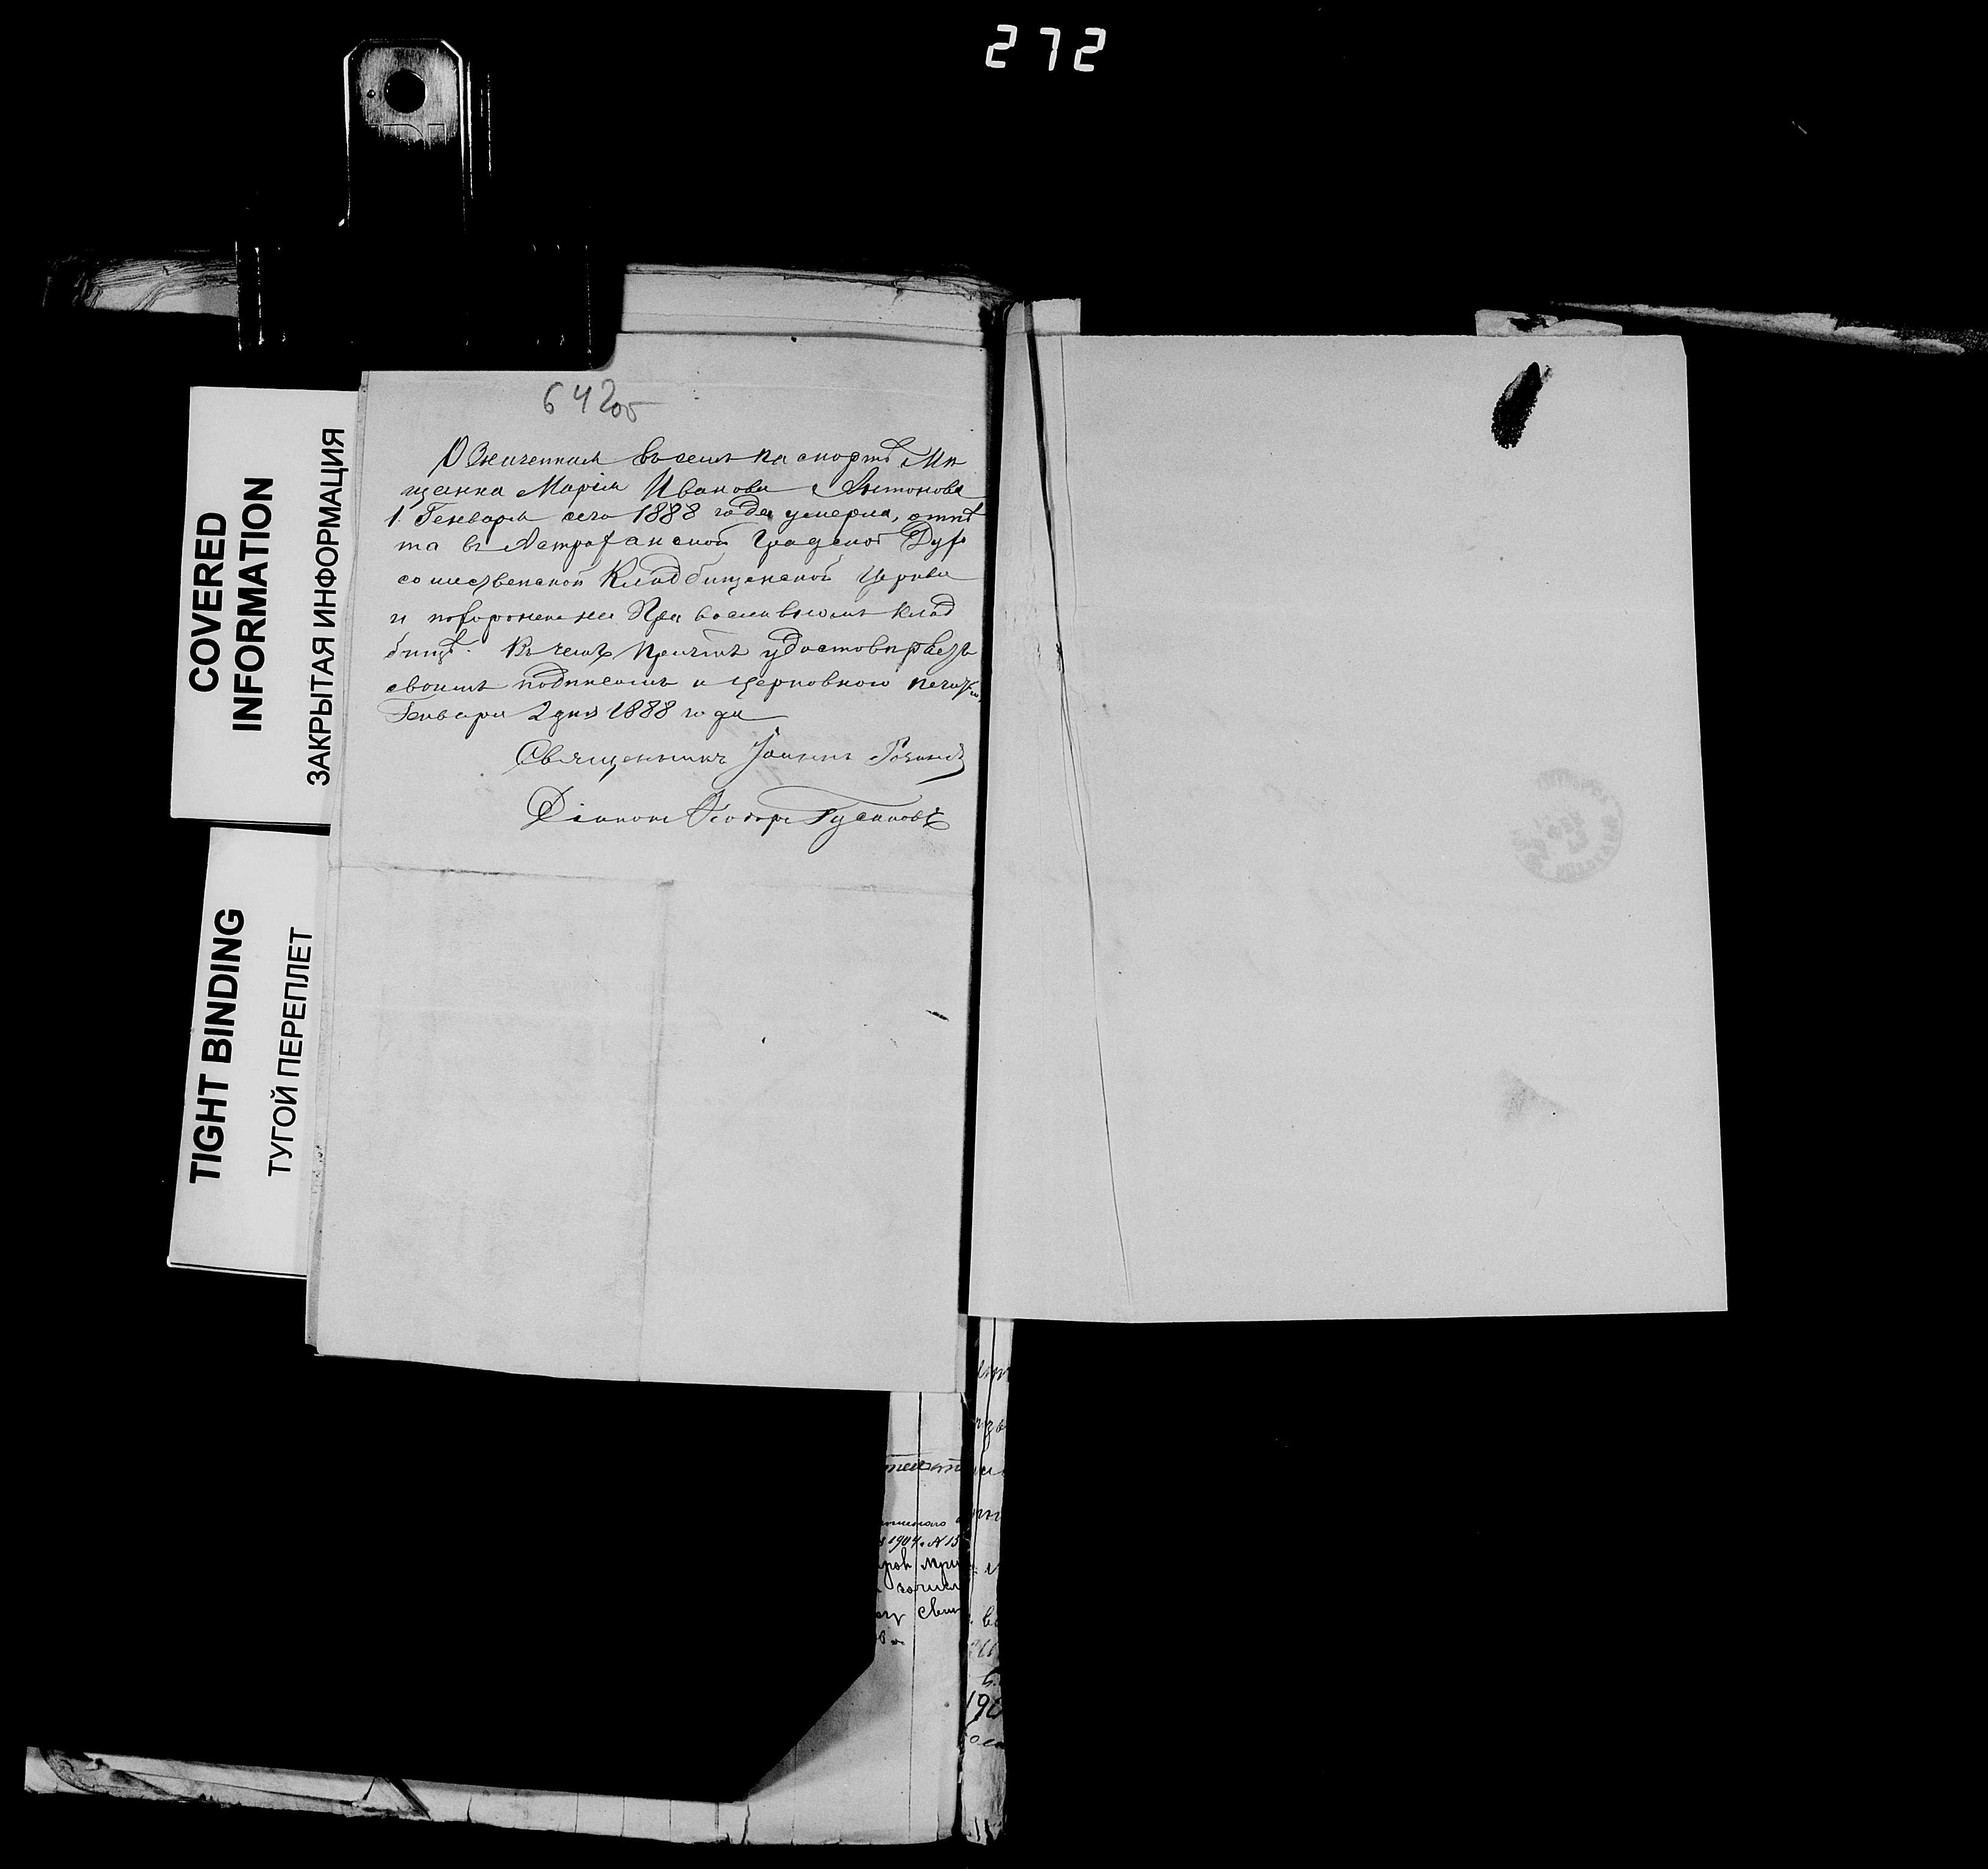 272
COVERED
INFORMATION
ЗАКРЫТАЯ ИНФОРМАЦИЯ
TIGHT BINDING
ТУГОЙ ПЕРЕПЛЕТ
642об
Означенная въ семъ паспортѣ Мѣ
щанка Марія Иванова Антонова
1 Генваря сего 1888 года умерла, отпѣ
та въ Астраханской Градской Духо
сошественской Кладбищенской Церкви
и похоронена на Православномъ Клад
бищѣ. Въ чемъ Причтъ удостовѣряетъ
своимъ подписомъ и церковною печатью,
Генваря 2 дня 1888 года
Священникъ Іоаннъ
Діаконъ Ѳеодоръ Гусаковъ
1904 г. № 15